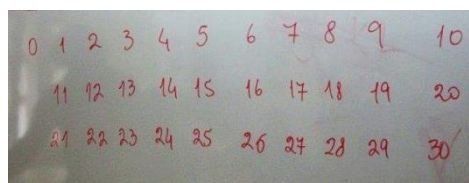 0 1 2 3 4 5 6 7 8 9 10
11 12 13 14 15 16 17 18 19 20
21 22 23 24 25 26 27 28 29 30